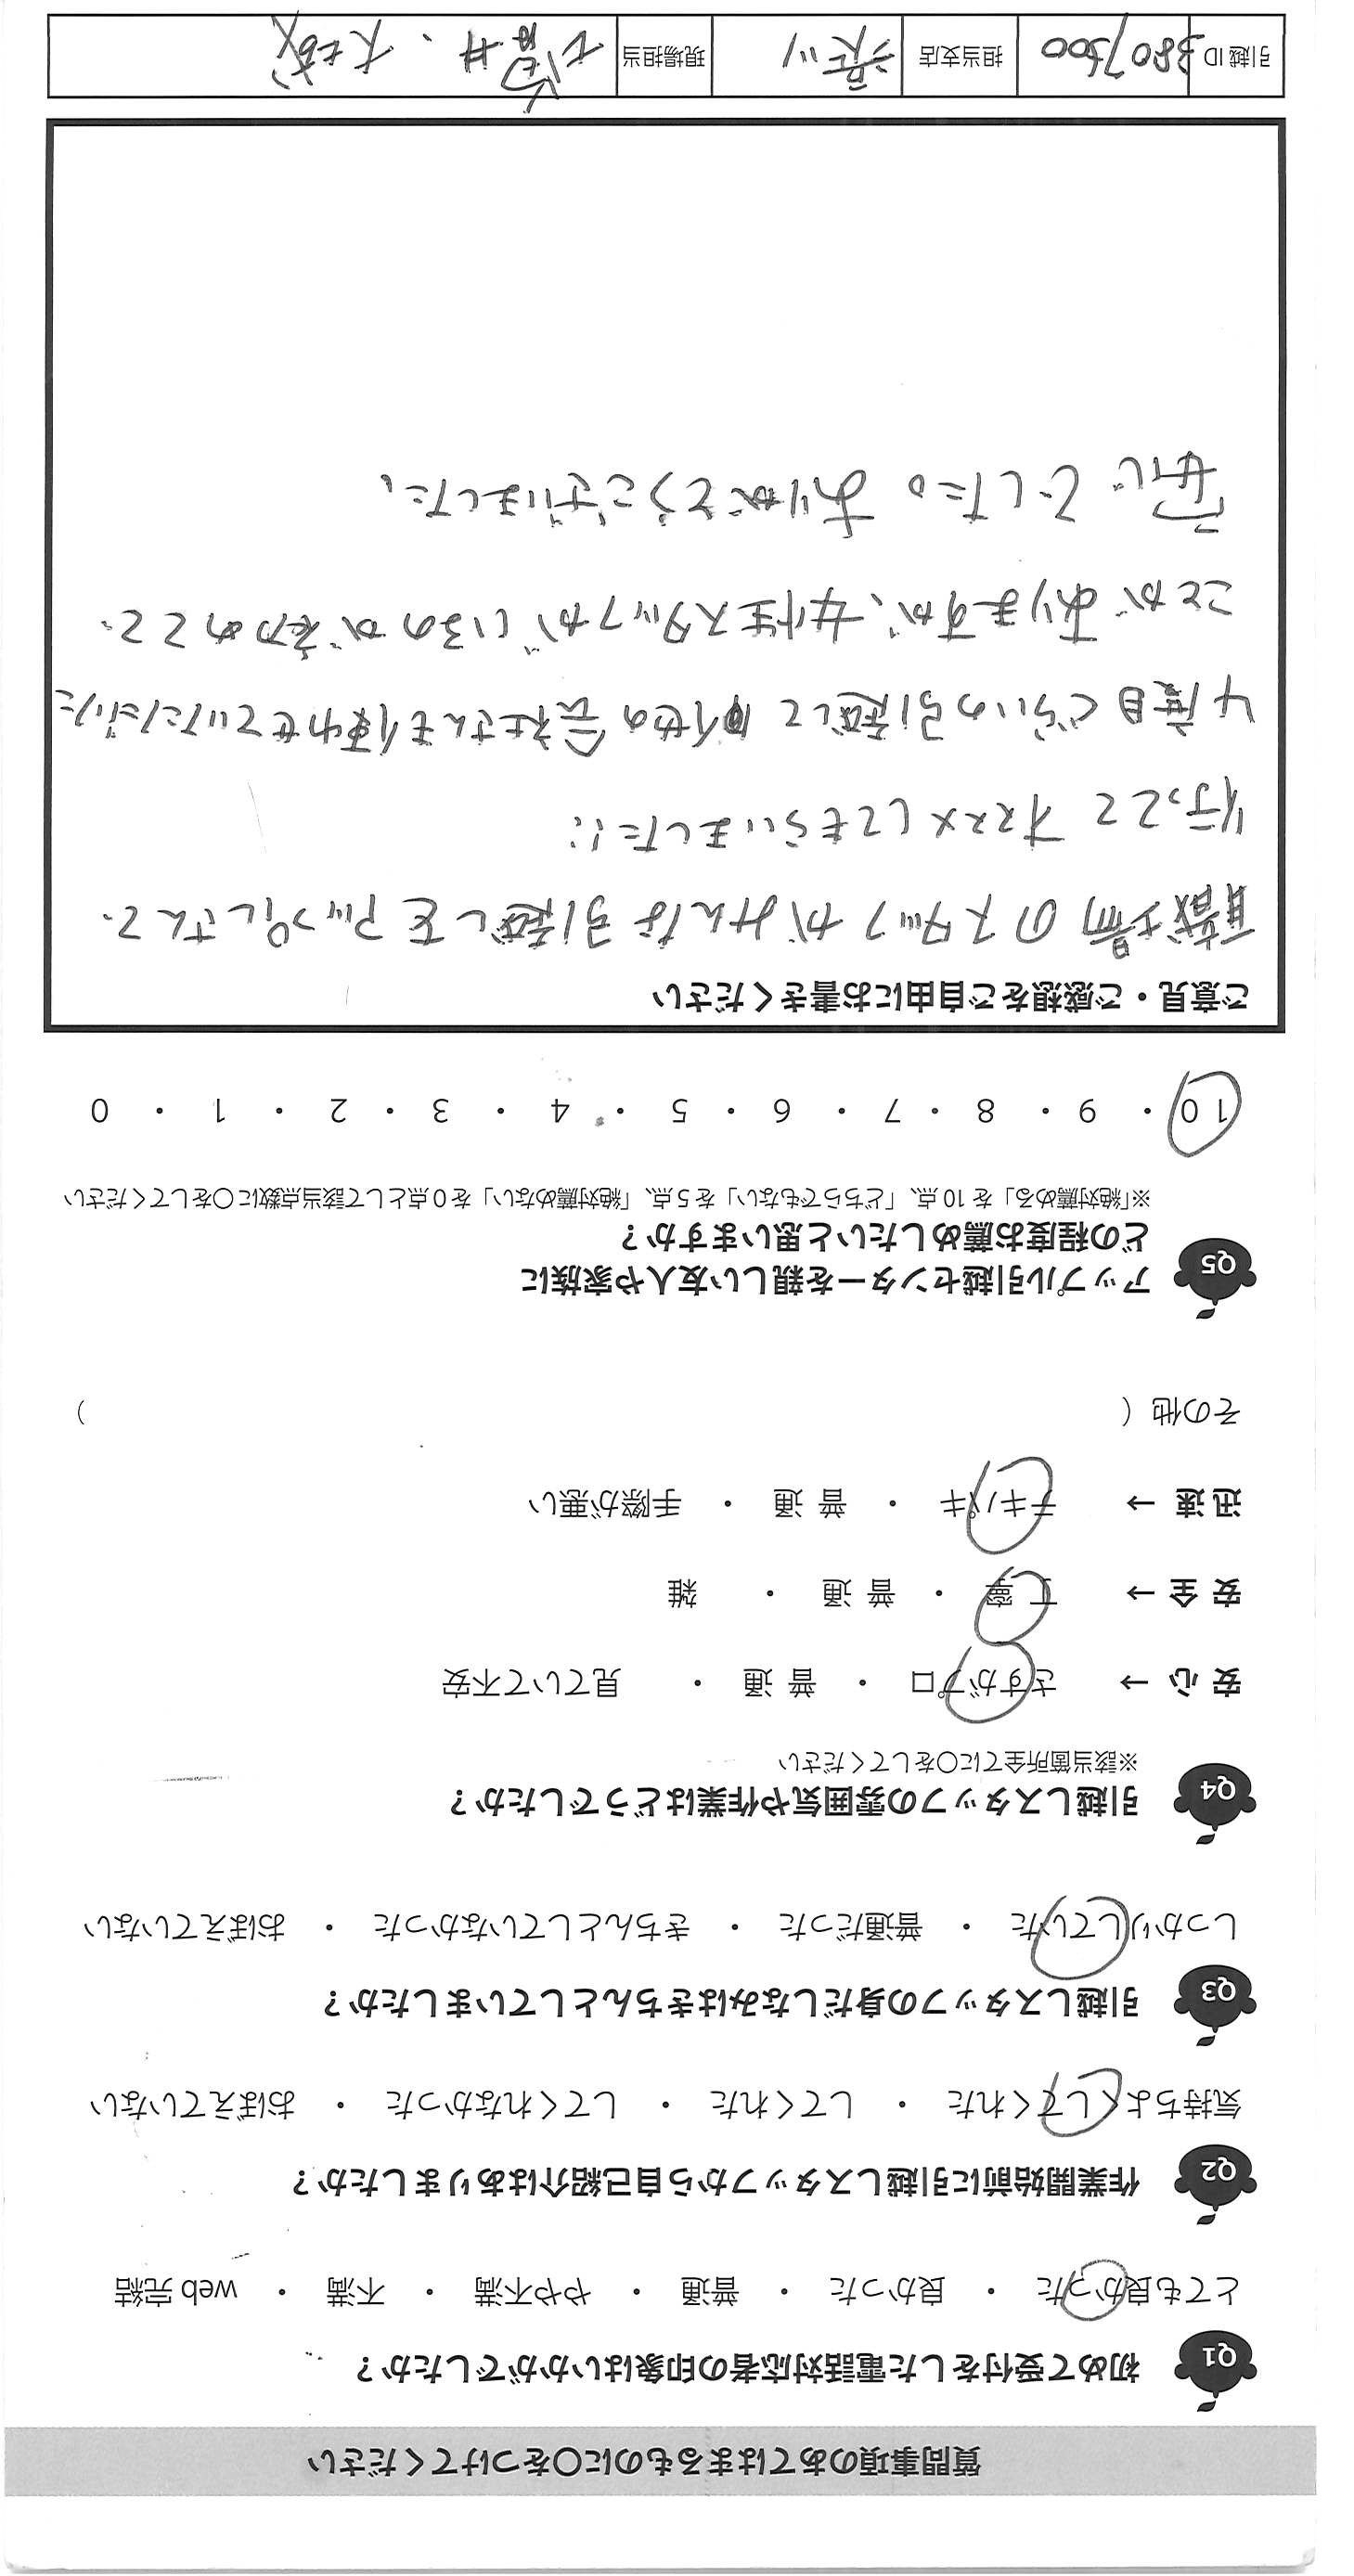 質問事項のあてはまるものに○をつけてください
Q1 初めて受付をした電話対応者の印象はいかがでしたか？
とても良かった ・ 良かった ・ 普通 ・ やや不満 ・ 不満 ・ web完結
Q2 作業開始前に引越しスタッフから自己紹介はありましたか？
気持ちよくしてくれた ・ してくれた ・ してくれなかった ・ おぼえていない
Q3 引越しスタッフの身だしなみはきちんとしていましたか？
しっかりしていた ・ 普通だった ・ きちんとしていなかった ・ おぼえていない
Q4 引越しスタッフの雰囲気や作業はどうでしたか？
※該当箇所全てに○をしてください
安心 → さすがプロ ・ 普通 ・ 見ていて不安
安全 → 丁寧 ・ 普通 ・ 雑
迅速 → テキパキ ・ 普通 ・ 手際が悪い
その他（ ）
Q5 アップル引越センターを親しい友人や家族に
どの程度お薦めしたいと思いますか？
※「絶対薦める」を10点、「どちらでもない」を5点、「絶対薦めない」を0点として該当点数に○をしてください
10 ・ 9 ・ 8 ・ 7 ・ 6 ・ 5 ・ 4 ・ 3 ・ 2 ・ 1 ・ 0
ご意見・ご感想をご自由にお書きください
職場のスタッフがみんな引越しをアップルさんで
行ってて オススメしてもらいました!!
4度目ぐらいの引越しで 他の会社さんも使わせていただいた
ことがありますが、女性スタッフがいるのが初めてで
安心でした。ありがとうございました、
引越ID 3807500 担当支店 現場担当